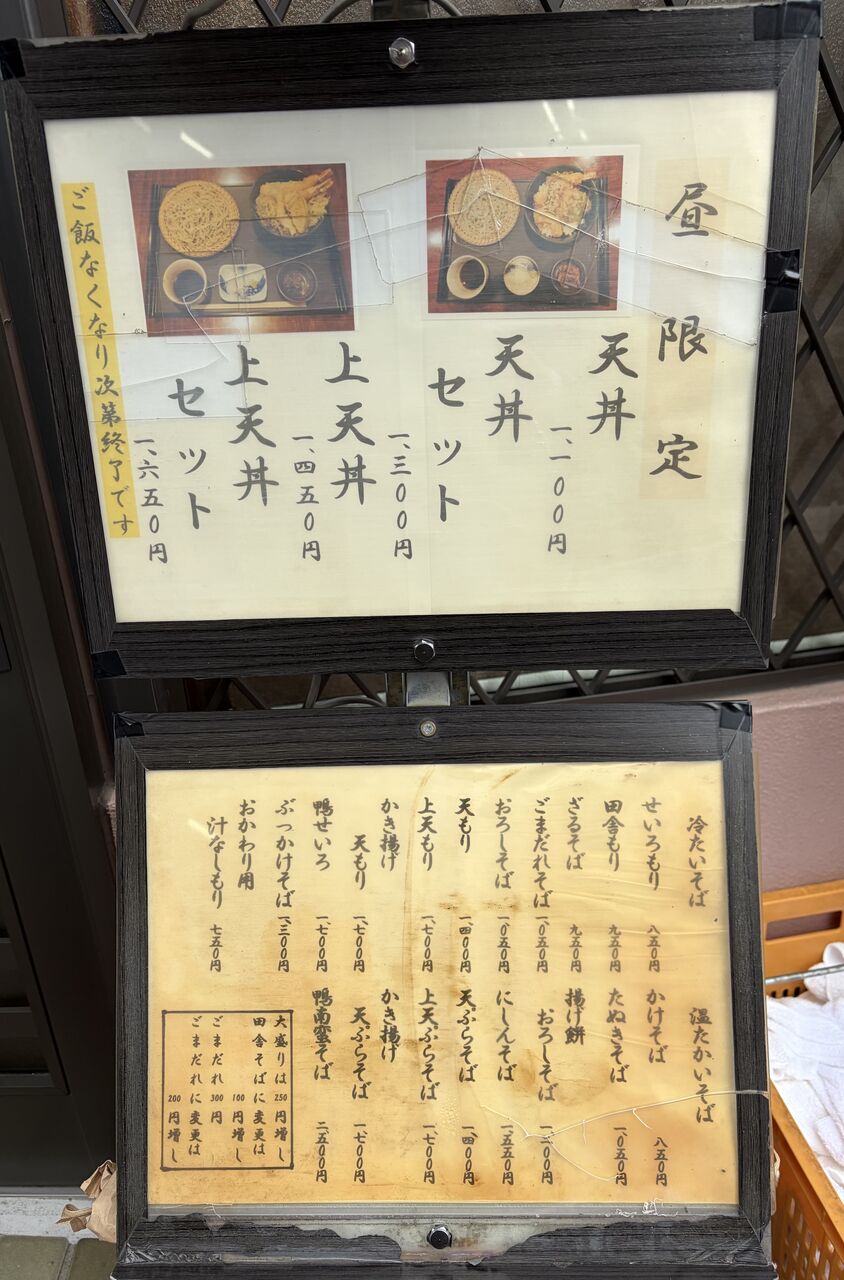 昼限定
天丼
一、一00円
天丼
セット
一、三00円
上天丼
一、四五0円
上天丼
セット
一、六五0円
ご飯なくなり次第終了です
冷たいそば
せいろもり 八五0円
田舎もり 九五0円
ざるそば 九五0円
ごまだれそば 一、0五0円
おろしそば 一、0五0円
天もり 一、四00円
上天もり 一、七00円
かき揚げ
天もり 一、七00円
鴨せいろ 一、七00円
ぶっかけそば 一、三00円
おかわり用
汁なしもり 七五0円
温たかいそば
かけそば 八五0円
たぬきそば 一、0五0円
揚げ餅
おろしそば
にしんそば 一、五五0円
天ぷらそば 一、四00円
上天ぷらそば 一、七00円
かき揚げ
天ぷらそば 一、七00円
鴨南蛮そば 二、五00円
大盛りは250円増し
田舎そばに変更は
100円増し
ごまだれ300円
ごまだれに変更は
200円増し